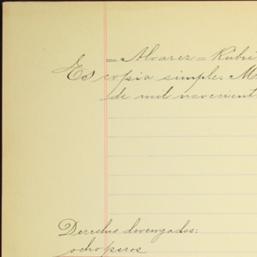 = Alvarez = Rubi
Es copia simple. M
de mil novecient
Derechos devengados:
ocho pesos